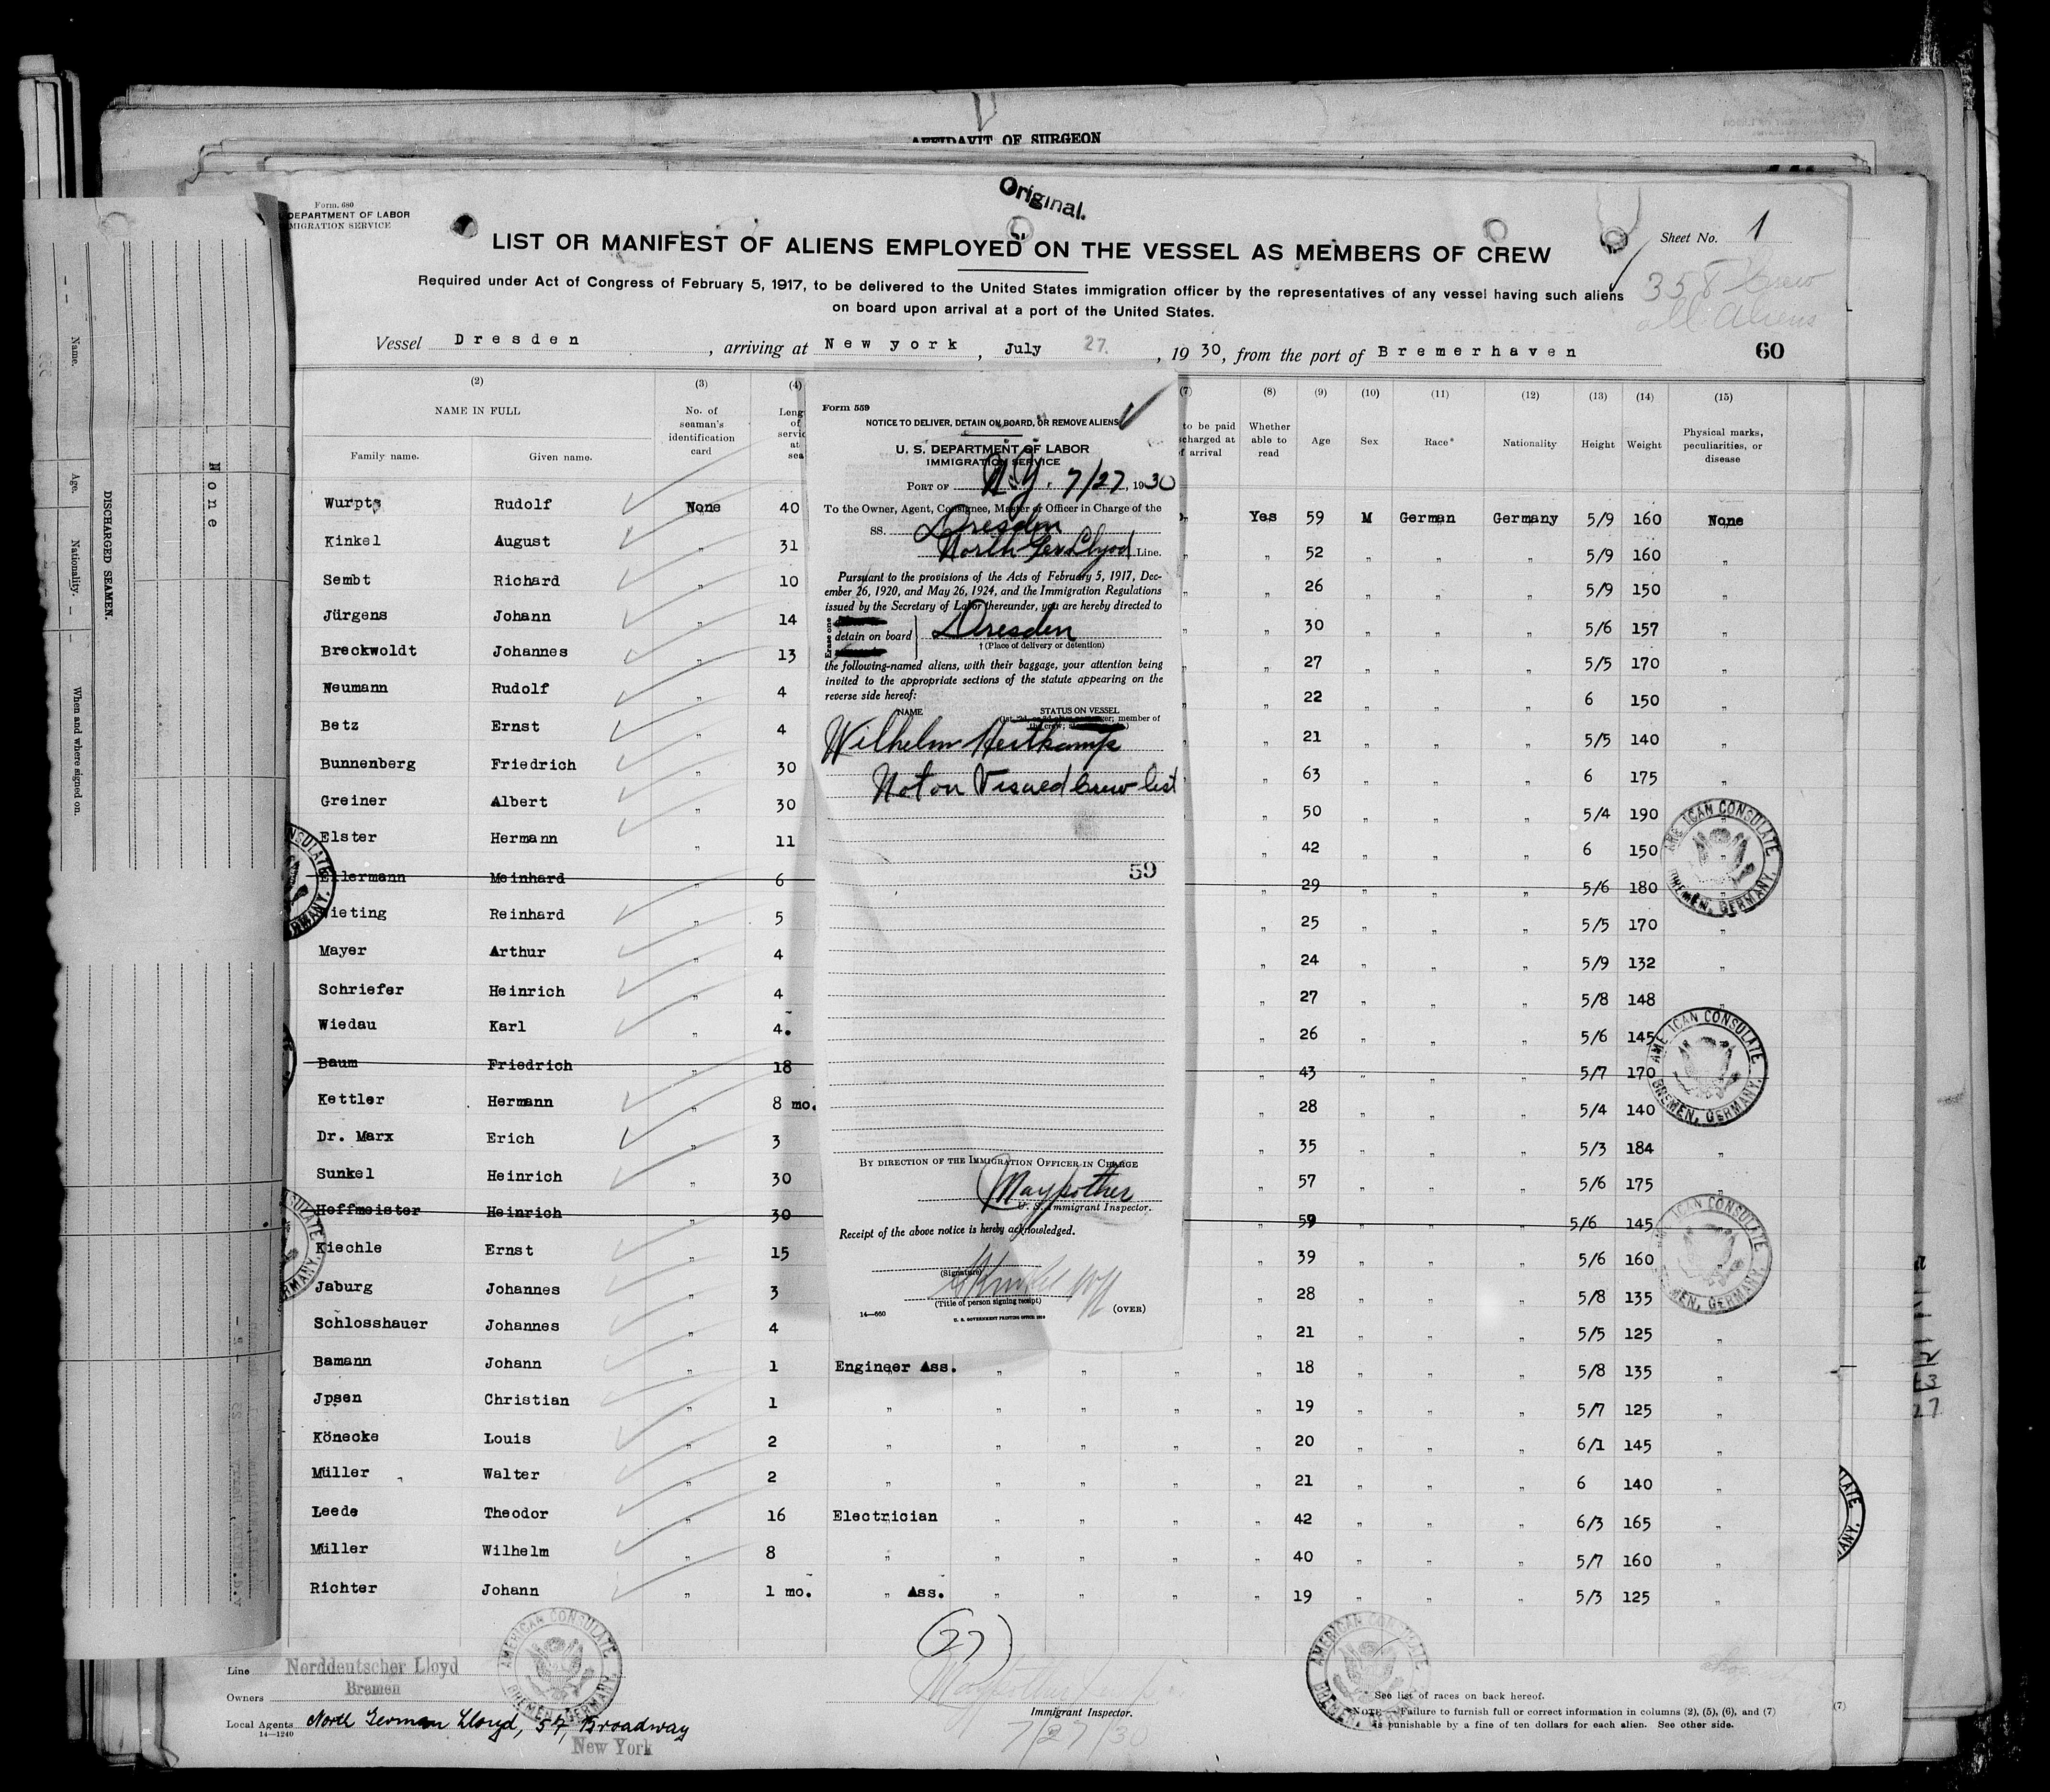 AFFIDAVIT OF SURGEON
Original.
Form 680
DEPARTMENT OF LABOR
MIGRATION SERVICE
Sheet No. 1
LIST OR MANIFEST OF ALIENS EMPLOYED ON THE VESSEL AS MEMBERS OF CREW
Required under Act of Congress of February 5, 1917, to be delivered to the United States immigration officer by the representatives of any vessel having such aliens
on board upon arrival at a port of the United States.
358 Crew
all Aliens
Vessel Dresden, arriving at New york, July 27, 1930, from the port of Bremerhaven
60
(2) (3) (4) (7) (8) (9) (10) (11) (12) (13) (14) (15)
NAME IN FULL
Family name. Given name.
No. of seaman's identification card
Whether able to read
Age Sex Race* Nationality Height Weight
Physical marks, peculiarities, or disease
Wurpts Rudolf None 40 Yes 59 M German Germany 5/9 160 None
Kinkel August „ 31 „ 52 „ „ „ 5/9 160 „
Sembt Richard „ 10 „ 26 „ „ „ 5/9 150 „
Jürgens Johann „ 14 „ 30 „ „ „ 5/6 157 „
Breckwoldt Johannes „ 13 „ 27 „ „ „ 5/5 170 „
Neumann Rudolf „ 4 „ 22 „ „ „ 6 150 „
Betz Ernst „ 4 „ 21 „ „ „ 5/5 140 „
Bunnenberg Friedrich „ 30 „ 63 „ „ „ 6 175 „
Greiner Albert „ 30 „ 50 „ „ „ 5/4 190 „
Elster Hermann „ 11 „ 42 „ „ „ 6 150 „
Ellermann Meinhard „ 6 „ 29 „ „ „ 5/6 180 „
Vieting Reinhard „ 5 „ 25 „ „ „ 5/5 170 „
Mayer Arthur „ 4 „ 24 „ „ „ 5/9 132 „
Schriefer Heinrich „ 4 „ 27 „ „ „ 5/8 148 „
Wiedau Karl „ 4. „ 26 „ „ „ 5/6 145 „
Baum Friedrich „ 18 „ 43 „ „ „ 5/7 170 „
Kettler Hermann „ 8 mo. „ 28 „ „ „ 5/4 140 „
Dr. Marx Erich „ 3 „ 35 „ „ „ 5/3 184 „
Sunkel Heinrich „ 30 „ 57 „ „ „ 5/6 175 „
Hoffmeister Heinrich „ 30 „ 59 „ „ „ 5/6 145 „
Kiechle Ernst „ 15 „ 39 „ „ „ 5/6 160 „
Jaburg Johannes „ 3 „ 28 „ „ „ 5/8 135 „
Schlosshauer Johannes „ 4 „ 21 „ „ „ 5/5 125 „
Bamann Johann „ 1 Engineer Ass. „ „ „ „ 18 „ „ „ 5/8 135 „
Jpsen Christian „ 1 „ „ „ „ „ 19 „ „ „ 5/7 125 „
Könecke Louis „ 2 „ „ „ „ „ 20 „ „ „ 6/1 145 „
Müller Walter „ 2 „ „ „ „ „ 21 „ „ „ 6 140 „
Leede Theodor „ 16 Electrician „ „ „ „ 42 „ „ „ 6/3 165 „
Müller Wilhelm „ 8 „ „ „ „ „ 40 „ „ „ 5/7 160 „
Richter Johann „ 1 mo. „ Ass. „ „ „ „ 19 „ „ „ 5/3 125 „
Form 559
NOTICE TO DELIVER, DETAIN ON BOARD, OR REMOVE ALIENS
U. S. DEPARTMENT OF LABOR
IMMIGRATION SERVICE
PORT OF N.Y. 7/27, 1930
To the Owner, Agent, Consignee, Master or Officer in Charge of the
SS. Dresden
North Ger Llyod Line.
Pursuant to the provisions of the Acts of February 5, 1917, Dec-
ember 26, 1920, and May 26, 1924, and the Immigration Regulations
issued by the Secretary of Labor thereunder, you are hereby directed to
Erase one
detain on board Dresden
† (Place of delivery or detention)
the following-named aliens, with their baggage, your attention being
invited to the appropriate sections of the statute appearing on the
reverse side hereof:
NAME STATUS ON VESSEL
Wilhelm Heitkamp
Not on Visaed Crew list
59
BY DIRECTION OF THE IMMIGRATION OFFICER IN CHARGE
U. S. Immigrant Inspector.
Receipt of the above notice is hereby acknowledged.
(Signature)
(Title of person signing receipt)
14—660 (OVER)
U. S. GOVERNMENT PRINTING OFFICE
DISCHARGED SEAMEN.
Name. Age. Nationality. When and where signed on.
None
AMERICAN CONSULATE
BREMEN, GERMANY.
AMERICAN CONSULATE,
BREMEN, GERMANY.
AMERICAN CONSULATE
BREMEN, GERMANY.
Line Norddeutscher Lloyd
Bremen
Owners
Local Agents North German Lloyd, 57, Broadway
14—1240
New York
AMERICAN CONSULATE
BREMEN, GERMANY.
(27)
Immigrant Inspector.
7/27/30
AMERICAN CONSULATE
BREMEN, GERMANY.
* See list of races on back hereof.
NOTE.—Failure to furnish full or correct information in columns (2), (5), (6), and (7)
is punishable by a fine of ten dollars for each alien. See other side.
(7)